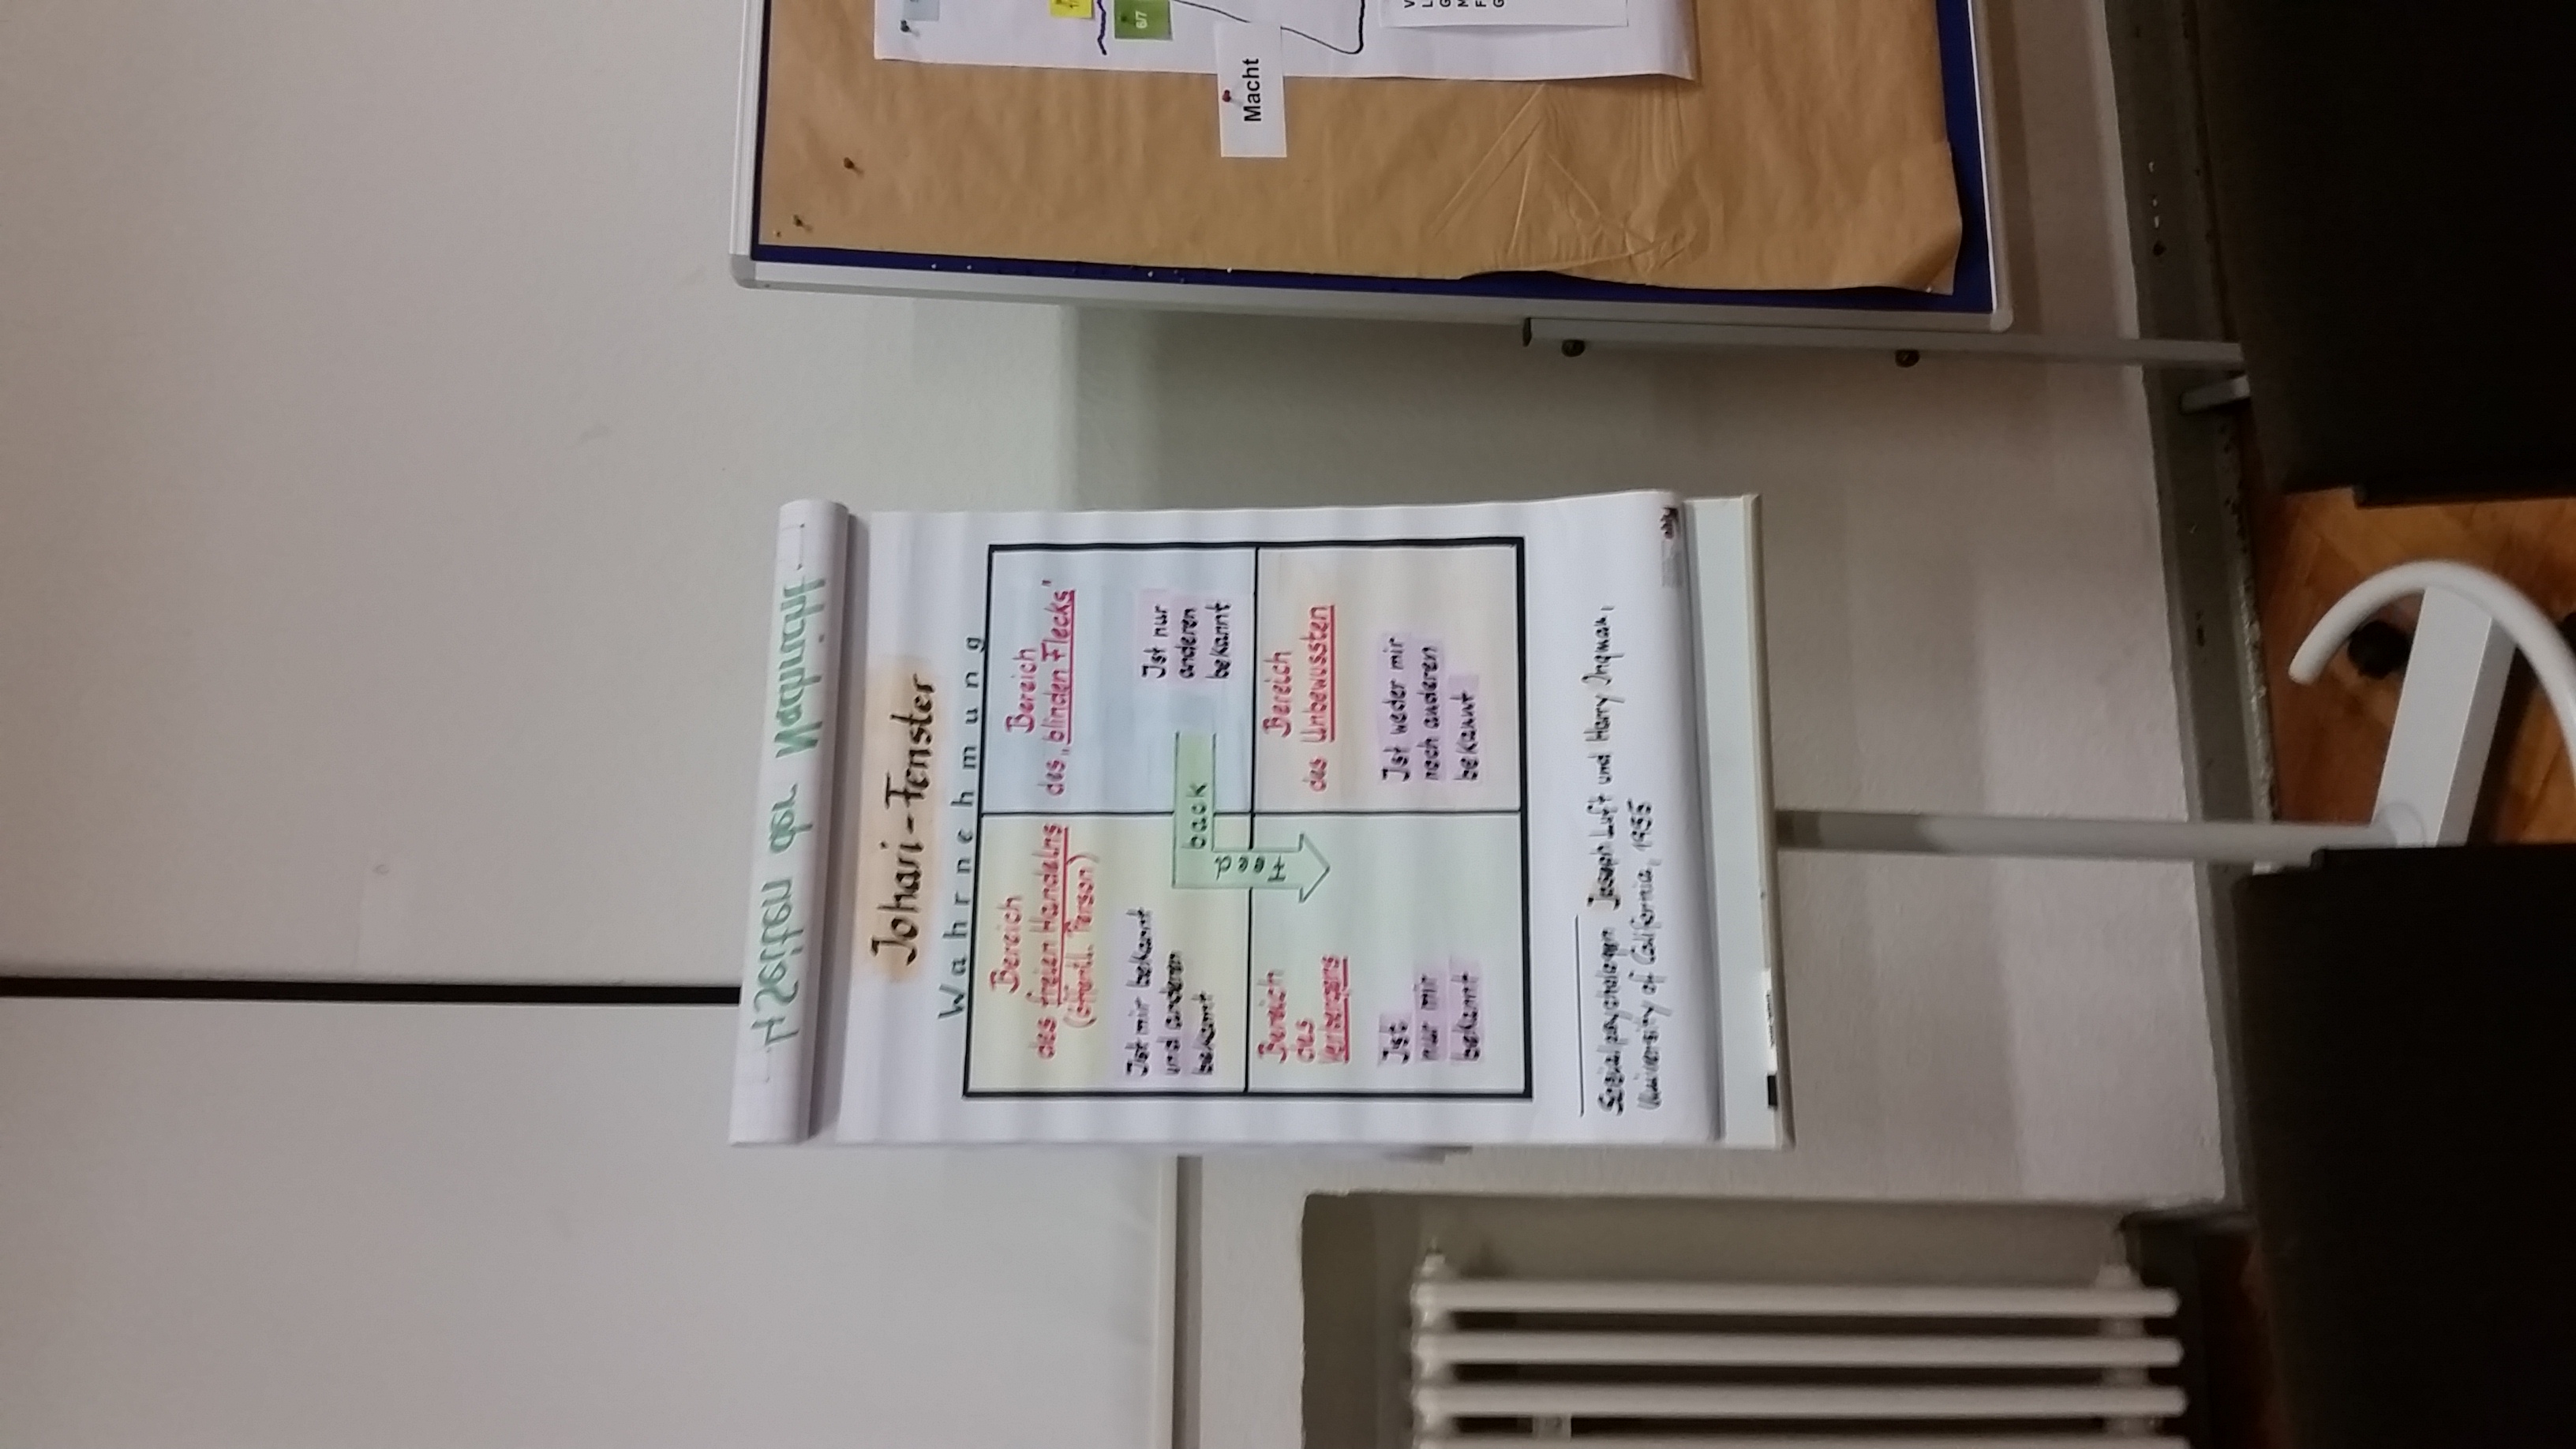 4 Seiten der Nachricht
Johari-Fenster
Wahrnehmung
Bereich
des freien Handelns
(öffentl. Person)
Ist mir bekannt
und anderen
bekannt
Bereich
des „blinden Flecks"
Ist nur
anderen
bekannt
Feed
back
Bereich
des
Verbergens
Ist
nur mir
bekannt
Bereich
des Unbewussten
Ist weder mir
noch anderen
bekannt
Sozialpsychologen Joseph Luft und Harry Ingman,
University of California, 1955
6/7
Macht
V
L
G
M
F
G